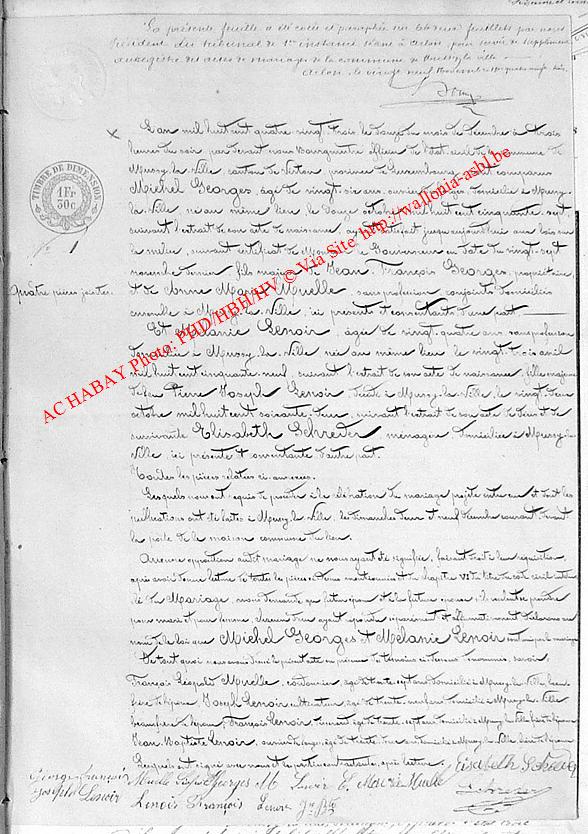 La présente feuille a été cotée et paraphée sur les deux feuillets par nous
Président du tribunal de 1re instance séant à Arlon pour servir de supplément
au registre des actes de mariages de la commune de Mussy la ville
Arlon, le vingt neuf
TIMBRE DE DIMENSION
1 Fr
30c
1
Quatre pièces jointes.
L'an mil huit cent quatre vingt trois le douze du mois de décembre à trois
heures du soir, par devant nous Bourgmestre officier de l'état civil de la commune de
Mussy-la-Ville, canton de Virton, province de Luxembourg, ont comparu
Michel Georges, âgé de vingt-six ans, domicilié à Mussy-
la-Ville, né au même lieu le douze octobre mil huit cent cinquante sept,
suivant l'extrait de son acte de naissance, ayant satisfait jusqu'aujourd'hui aux lois sur
la milice, suivant certificat de Monsieur le Gouverneur en date du vingt-sept
novembre dernier, fils majeur de Jean François Georges, propriétaire
et de Anne Marie Muelle, sans profession, conjoints domiciliés
ensemble à Mussy-la-Ville, ici présents et consentants d'une part.
Et Mélanie Lenoir, âgée de vingt-quatre ans, sans profession
domiciliée à Mussy-la-Ville née au même lieu le vingt-trois avril
mil huit cent cinquante-neuf, suivant l'extrait de son acte de naissance, fille majeure
de feu Pierre Joseph Lenoir, décédé à Mussy-la-Ville, le vingt-deux
octobre mil huit cent soixante-deux, suivant l'extrait de son acte de décès et de
survivante Elisabeth Schreder, ménagère, domiciliée à Mussy-la-
Ville, ici présente et consentante d'autre part.
Toutes les pièces relatées ci-annexées.
Lesquels nous ont requis de procéder à la célébration du mariage projeté entre eux et dont les
publications ont été faites à Mussy-la-Ville, les dimanches deux et neuf décembre courant devant
la porte de la maison commune du lieu.
Aucune opposition audit mariage ne nous ayant été signifiée, faisant droit à leur réquisition,
après avoir donné lecture de toutes les pièces ci-dessus mentionnées et du chapitre VI du titre du code civil intitulé
du Mariage, nous demandé au futur époux et à la future épouse s'ils veulent se prendre
pour mari et pour femme, chacun d'eux ayant répondu séparément et affirmativement, déclarons au
nom de la loi que Michel Georges et Mélanie Lenoir sont unis par le mariage.
De tout quoi nous avons dressé le présent acte en présence de témoins ci-dessous dénommés, savoir:
François Léopold Muelle, cordonnier, âgé de trente-sept ans domicilié à Mussy-la-Ville,
Joseph Lenoir cultivateur, âgé de trente-neuf ans domicilié à Mussy-la-Ville
François Lenoir, âgé de trente-sept ans, domicilié à Mussy-la-Ville
Jean Baptiste Lenoir, âgé de trente-deux ans domicilié à Mussy-la-Ville
Lesquels ont signé avec nous et les parties contractantes, après lecture.
Elisabeth Schreder
Georges François
Muelle Georges M. Lenoir Marie Muelle
Joseph Lenoir
Lenoir François Lenoir
AC HABAY Photo: PHD/HBH/HV © Via Site: http://wallonia-asbl.be